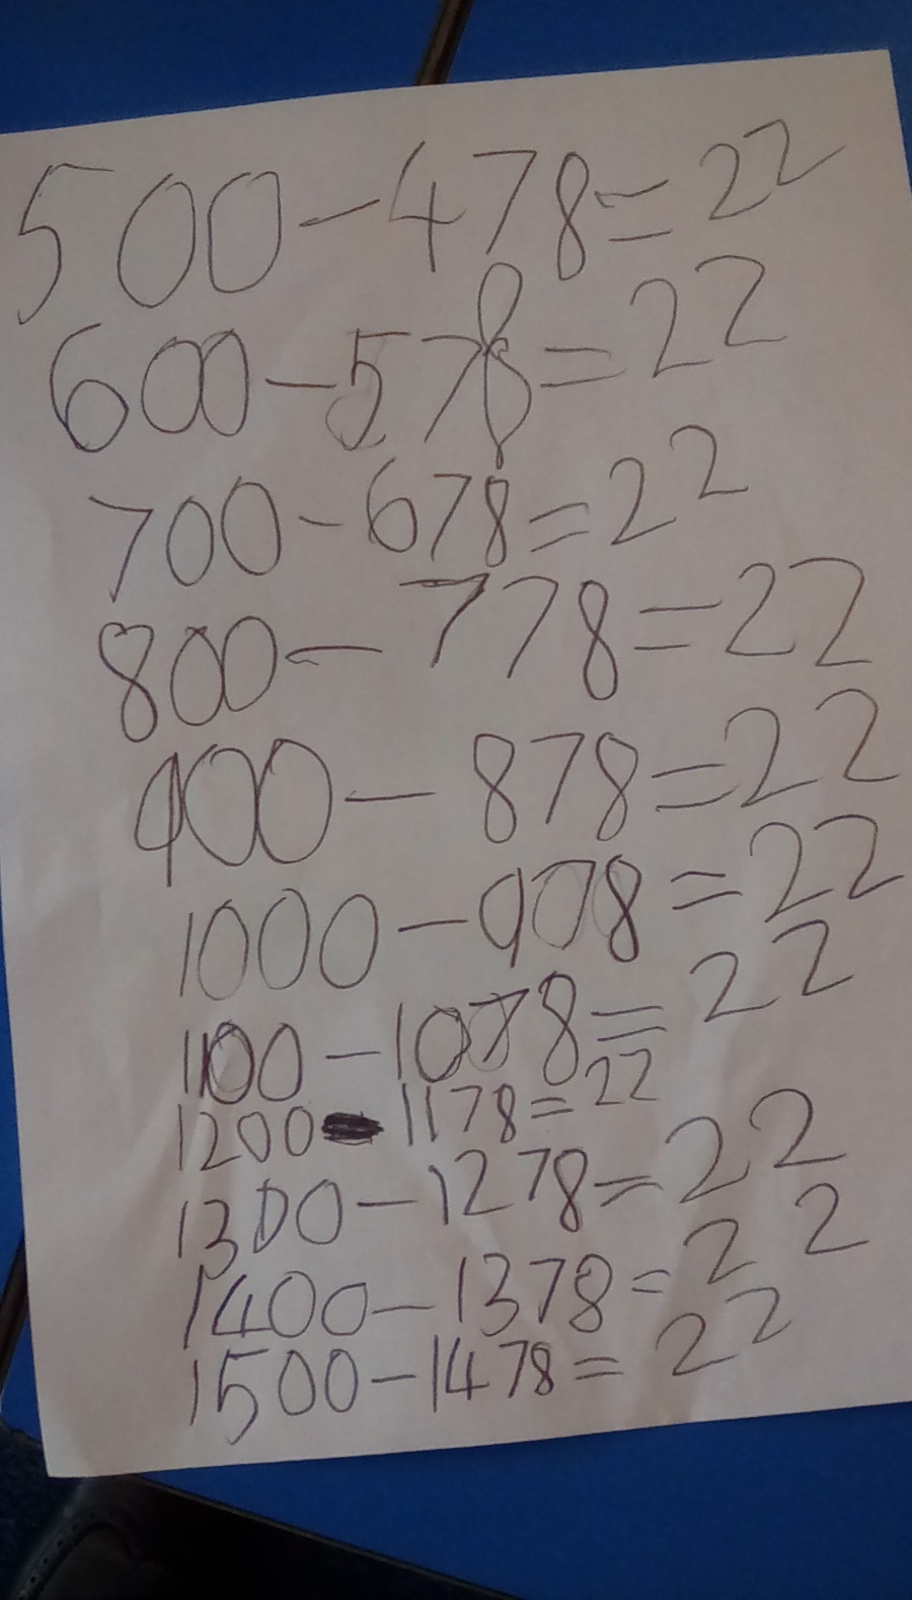 500-478=22
600-578=22
700-678=22
800-778=22
900-878=22
1000-978=22
1100-1078=22
1200-1178=22
1300-1278=22
1400-1378=22
1500-1478=22